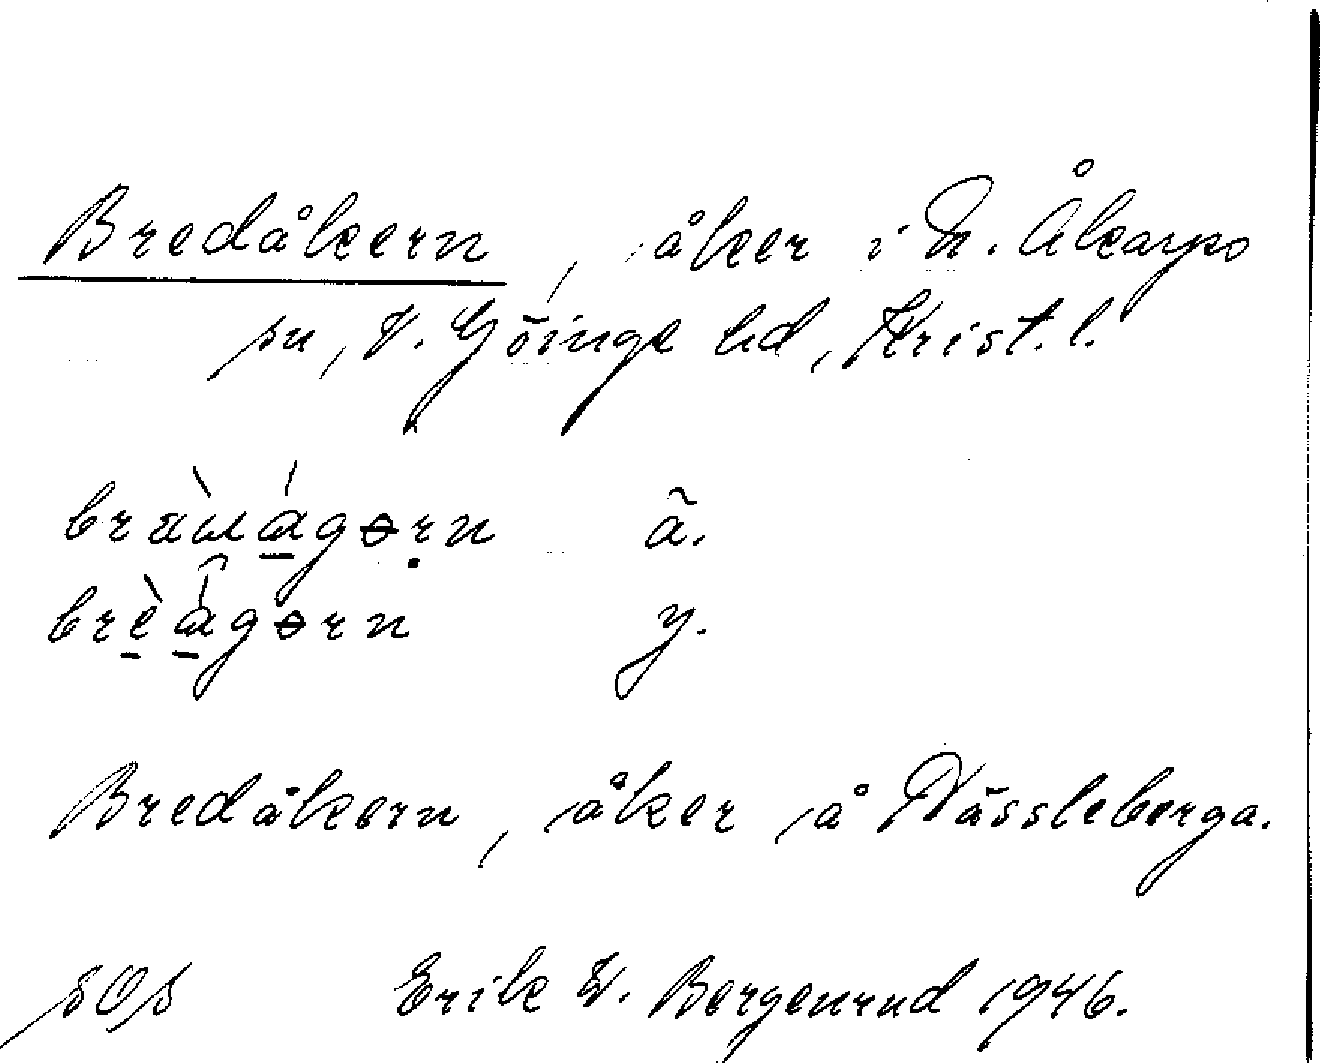 Bredåkern, åker i N. Åkarps
sn, V. Göinge hd, Krist. l.
ä.
brèágørn y.
Bredåkern, åker å Nässleberga.
Erik W. Bergenrud 1946.